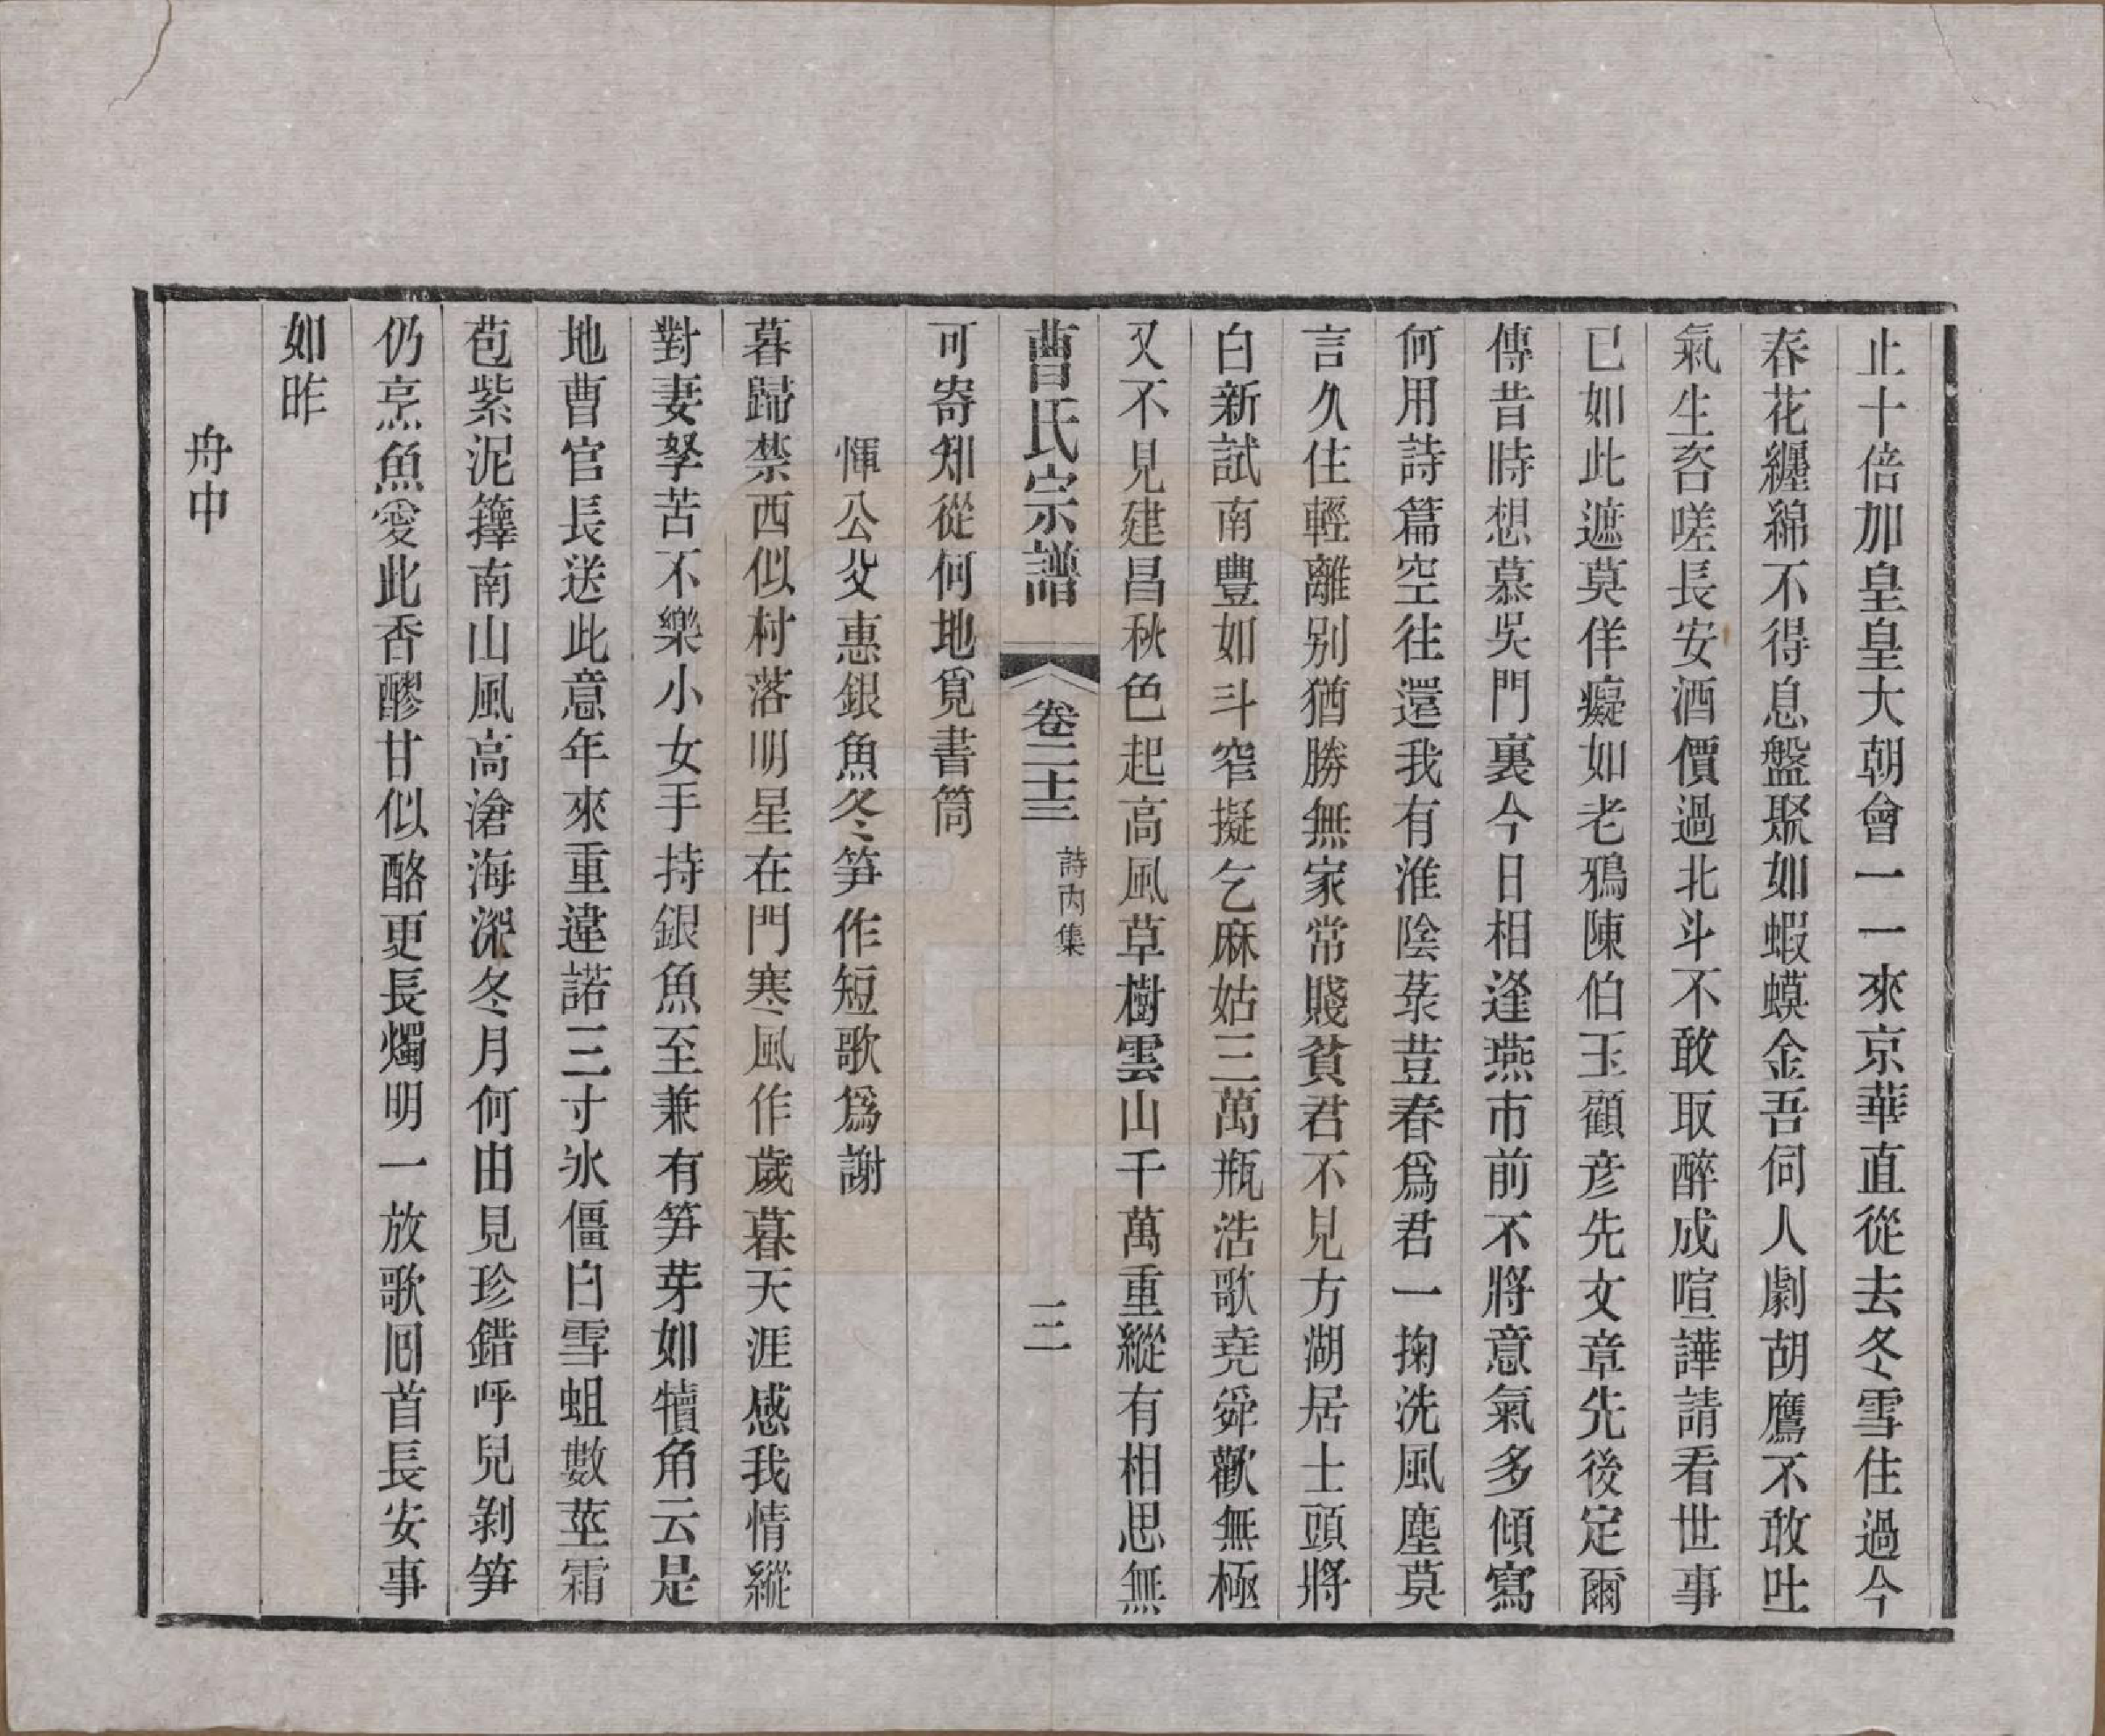 止十倍加皇皇大朝會一一來京華直從去冬雪住過今
春花纏綿不得息盤聚如蝦蟆金吾伺人劇胡鷹不敢吐
氣生咨嗟長安酒價過北斗不敢取醉成喧譁請看世事
已如此遮莫佯癡如老鴉陳伯玉顧彥先文章先後定爾
傳昔時想慕吳門裏今日相逢燕市前不將意氣多傾寫
何用詩篇空往還我有淮陰萊荳春爲君一掬洗風塵莫
言久住輕離別猶勝無家常賤貧君不見方湖居士頭將
白新試南豐如斗窄擬乞麻姑三萬瓶浩歌堯舜歡無極
又不見建昌秋色起高風草樹雲山千萬重縱有相思無
曹氏宗譜 卷二十三 詩內集 三
可寄知從何地覓書筒
惲公父惠銀魚冬笋作短歌爲謝
暮歸禁西似村落明星在門寒風作歲暮天涯感我情縱
對妻孥苦不樂小女手持銀魚至兼有笋芽如犢角云是
地曹官長送此意年來重違諾三寸氷僵白雪蛆數莖霜
苞紫泥籜南山風高滄海深冬月何由見珍錯呼兒剝笋
仍烹魚愛此香醪甘似酪更長燭明一放歌囘首長安事
如昨
舟中